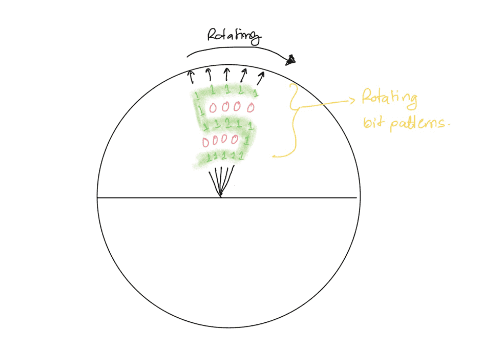 Rotating
1 1 1 1 1
1 0 0 0 0
1 1 1 1 1
0 0 0 0 1
1 1 1 1 1
Rotating
bit patterns.